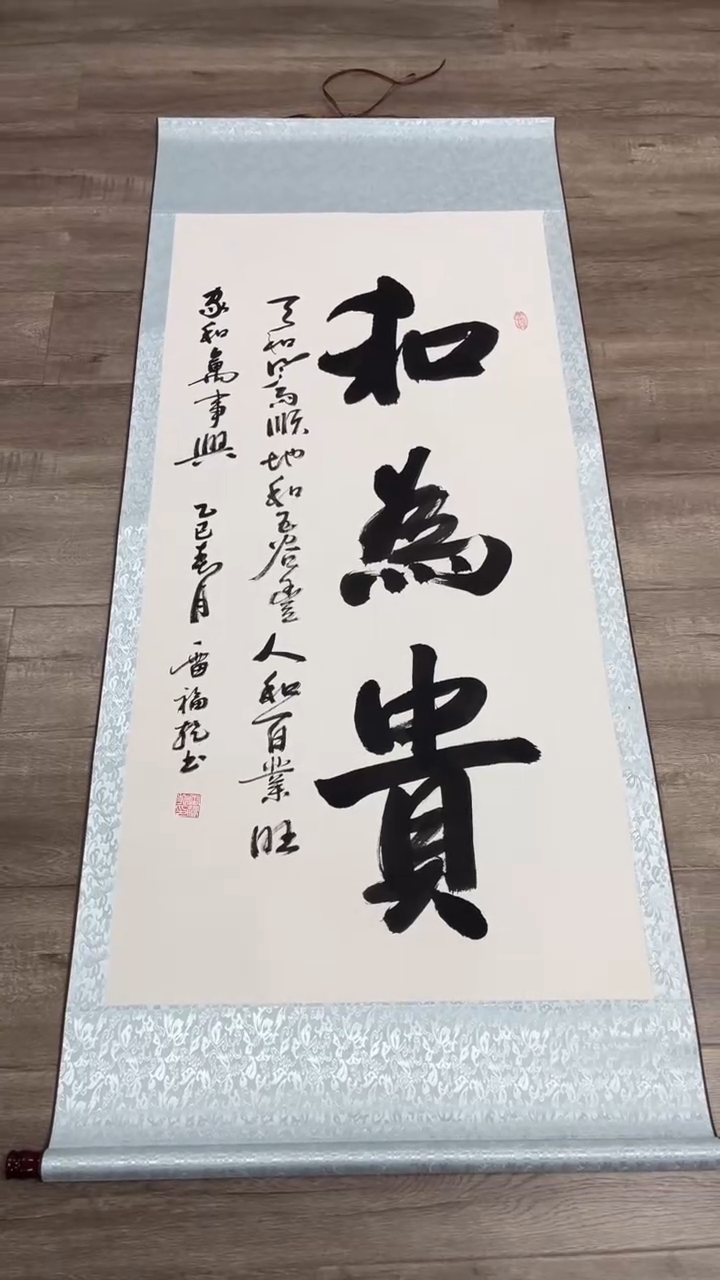 和為貴
天和順地和五谷豐人和百業旺
家和萬事興 乙巳春月 雷福書